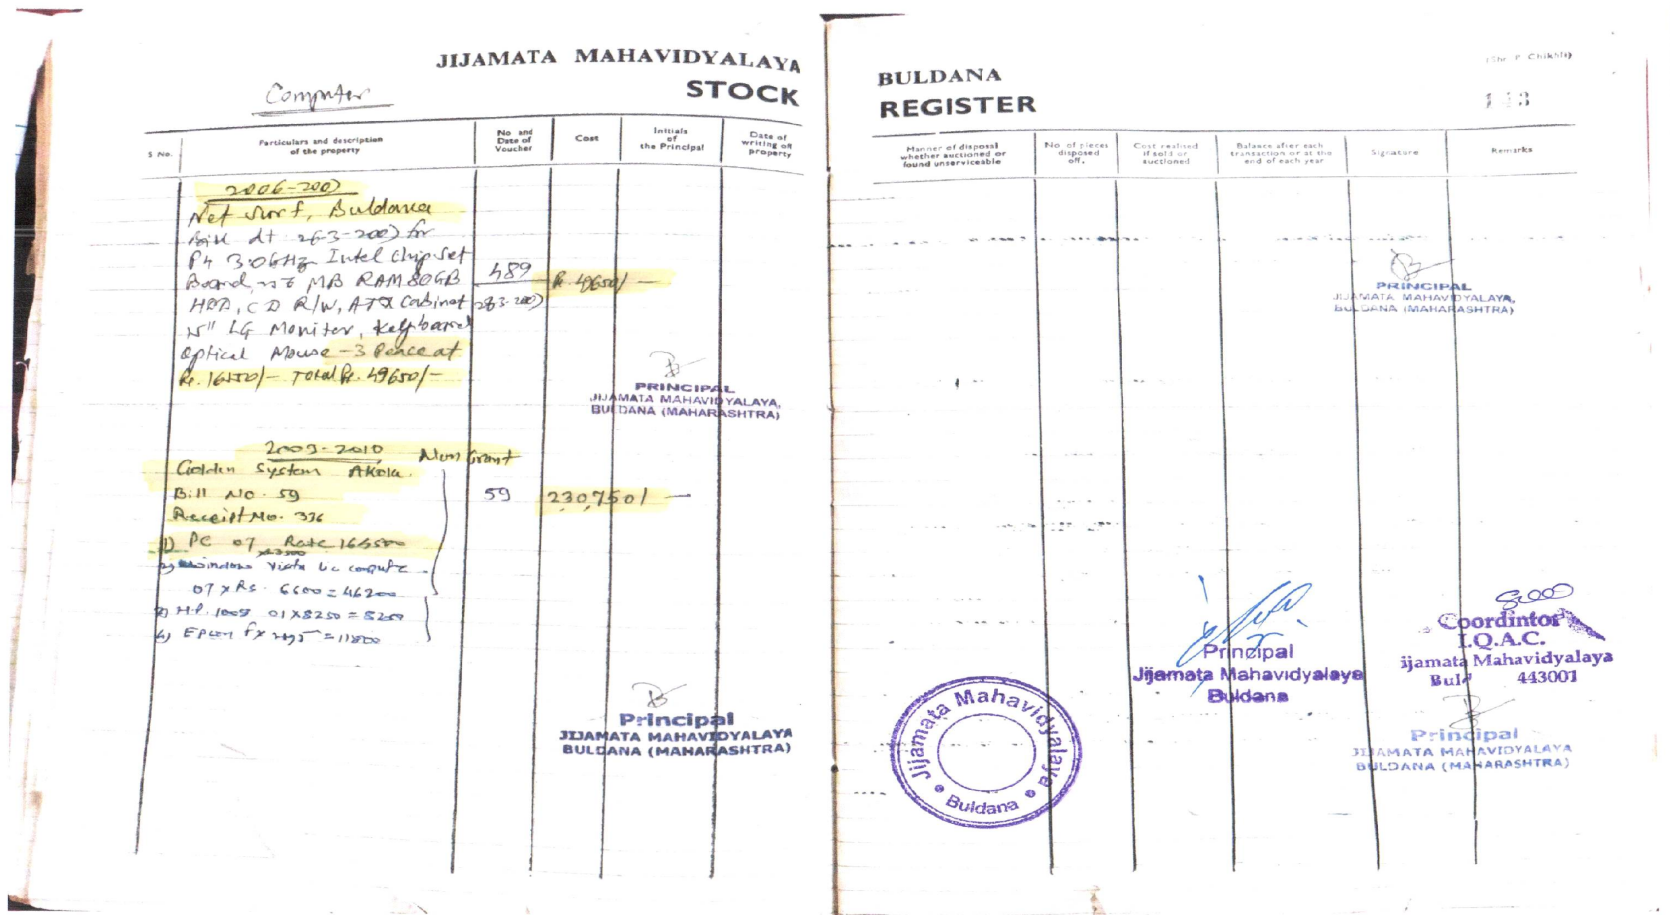 JIJAMATA MAHAVIDYALAYA
STOCK
Computer
S No.
Particulars and description
of the property
No and
Date of
Voucher
Cost
Initials
of
the Principal
Date of
writing off
property
2006-2007
Net Surf, Buldana
Bill dt 26-3-2007 for
P4 3.06Hz Intel chipset
Board, MB RAM 80GB
HDD, CD R/W, ATX Cabinet
15" LG Monitor, Keyboard
Optical Mouse - 3 Peace at
Rs. 16550/- Total Rs. 49650/-
489
Rs. 49650/-
PRINCIPAL
JIJAMATA MAHAVIDYALAYA,
BULDANA (MAHARASHTRA)
2009-2010 Non Grant
Golden System Akola
Bill No. 59
59
230,750/-
Receipt No. 336
1) PC 07 Rate 164500
x23500
2) Windows Vista
07 x Rs. 6600 = 46200
3) H.P. 01 x 8250 = 8250
4) Epson
Principal
JIJAMATA MAHAVIDYALAYA
BULDANA (MAHARASHTRA)
BULDANA
REGISTER
143
Manner of disposal
whether auctioned or
found unserviceable
No of pieces
disposed
off.
Cost realised
if sold or
auctioned
Balance after each
transaction or at the
end of each year
Signature
Remarks
PRINCIPAL
JIJAMATA MAHAVIDYALAYA,
BULDANA (MAHARASHTRA)
Principal
Jijamata Mahavidyalaya
Buldana
Coordintor
I.Q.A.C.
ijamata Mahavidyalaya
Bul 443001
Jijamata Mahavidyalaya
Buldana
Principal
JIJAMATA MAHAVIDYALAYA
BULDANA (MAHARASHTRA)